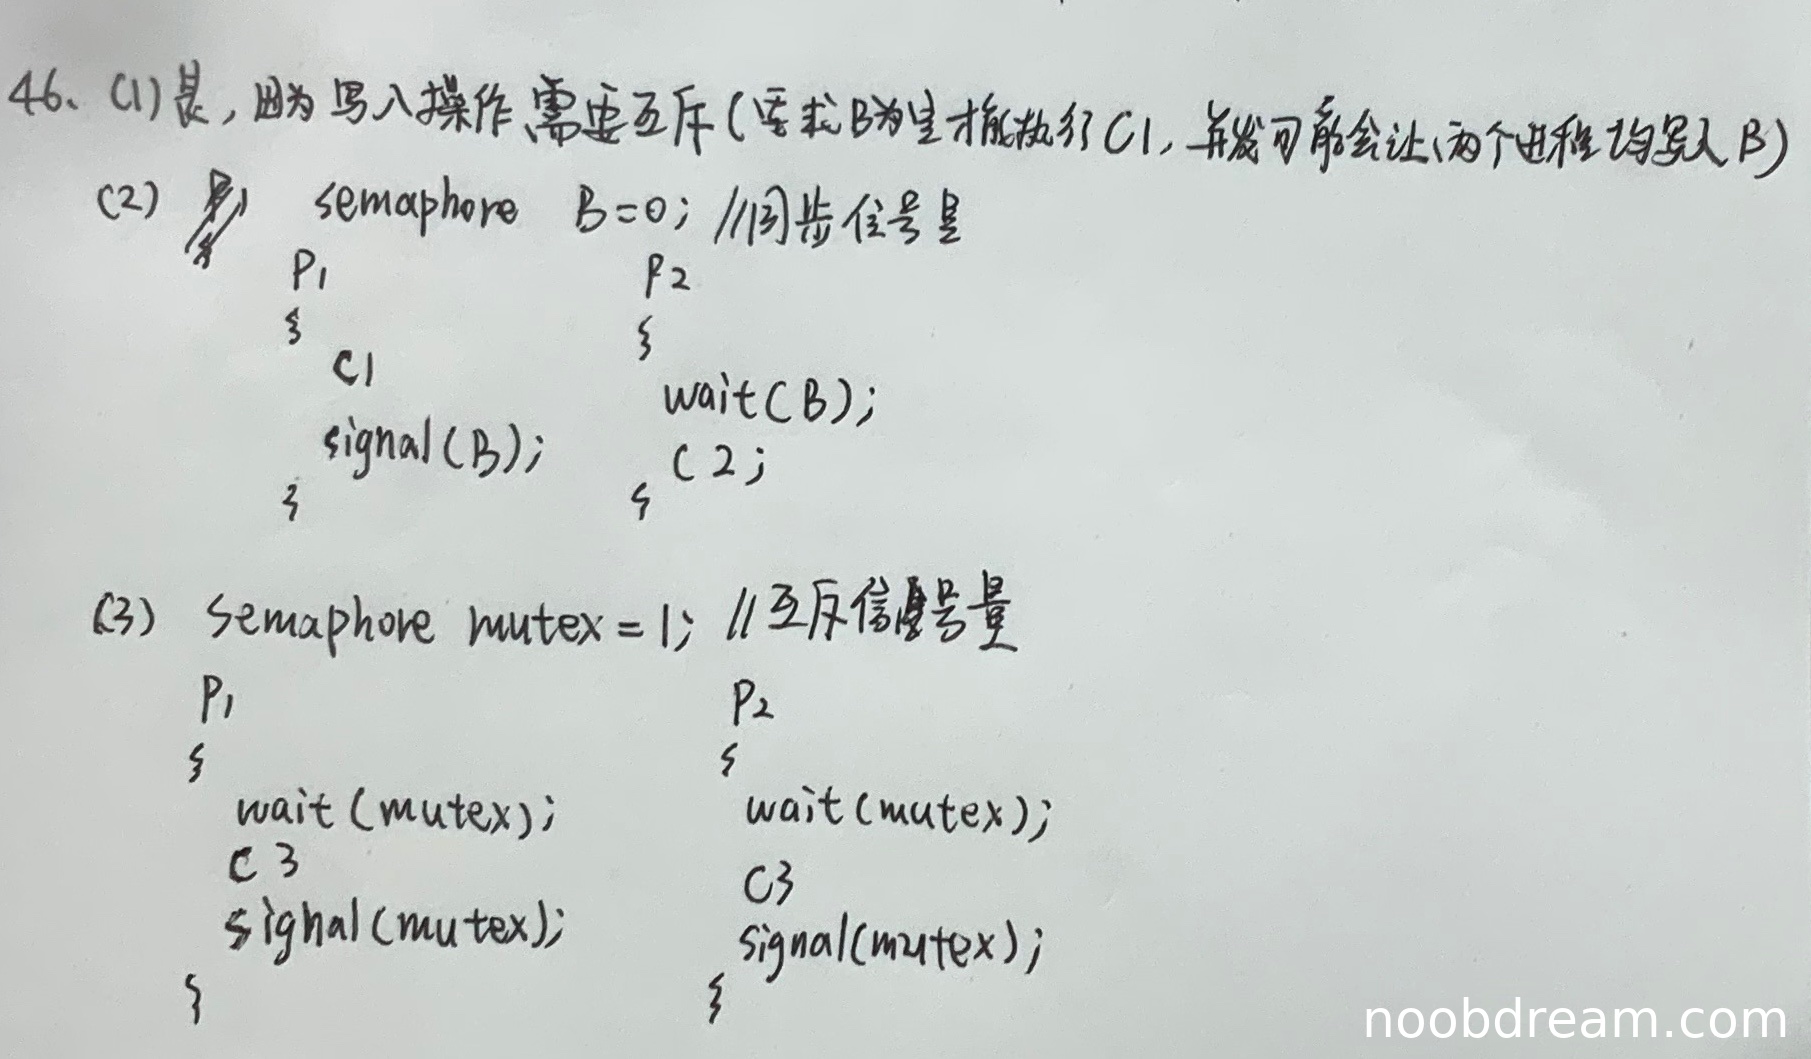 46、(1)是，因为写入操作需要互斥(要求B为空才能执行C1，并发可能会让两个进程均写入B)
(2) semaphore B=0; //同步信号量
P1 P2
{ {
C1 wait(B);
signal(B); C2;
} }
(3) semaphore mutex=1; //互斥信号量
P1 P2
{ {
wait(mutex); wait(mutex);
C3 C3
signal(mutex); signal(mutex);
} }
noobdream.com